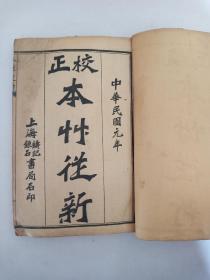 中華民國元年
校正
本艸從新
上海鑄記鍊石書局石印